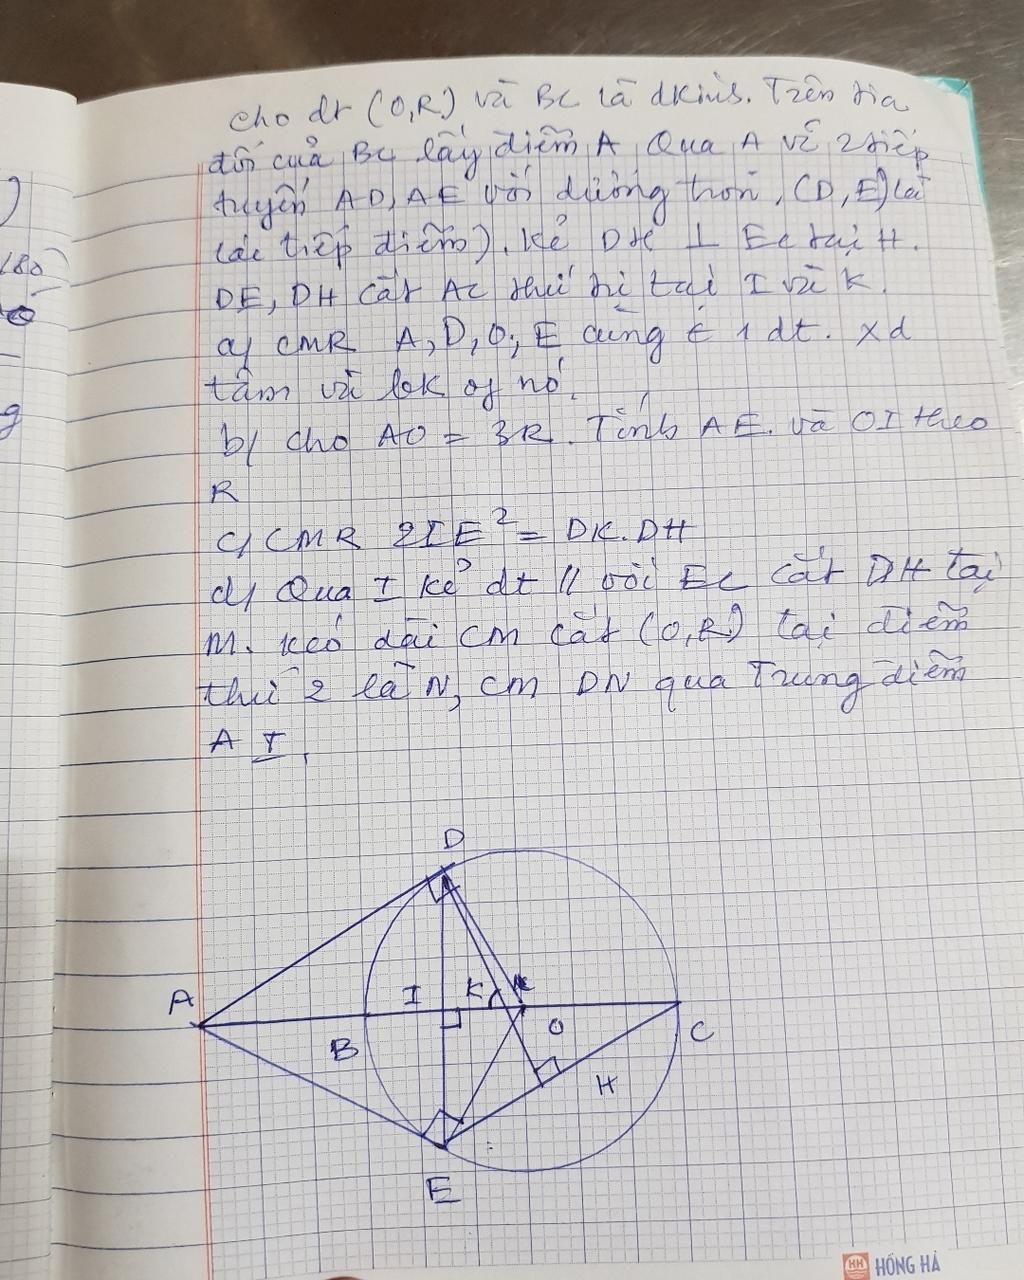 cho dt (O,R) và BC là đkính. Trên tia
đối của BC lấy điểm A Qua A vẽ 2 tiếp
tuyến AD, AE với đường tròn, (D, E) là
các tiếp điểm). Kẻ DH ⊥ EC tại H.
DE, DH cắt AC thứ tự tại I và K.
a) CMR A, D, O, E cùng ∈ 1 đt. Xđ
tâm và bk of nó.
b) cho AO = 3R. Tính AE. và OI theo
R
c) CMR 2IE² = DK.DH
d) Qua I kẻ dt // với EC cắt DH tại
M. kéo dài CM cắt (O,R) tại điểm
thứ 2 là N, cm DN qua Trung điểm
A I.
)
180
g
D
A
I
K
B
O
C
H
E
HH HỒNG HÀ